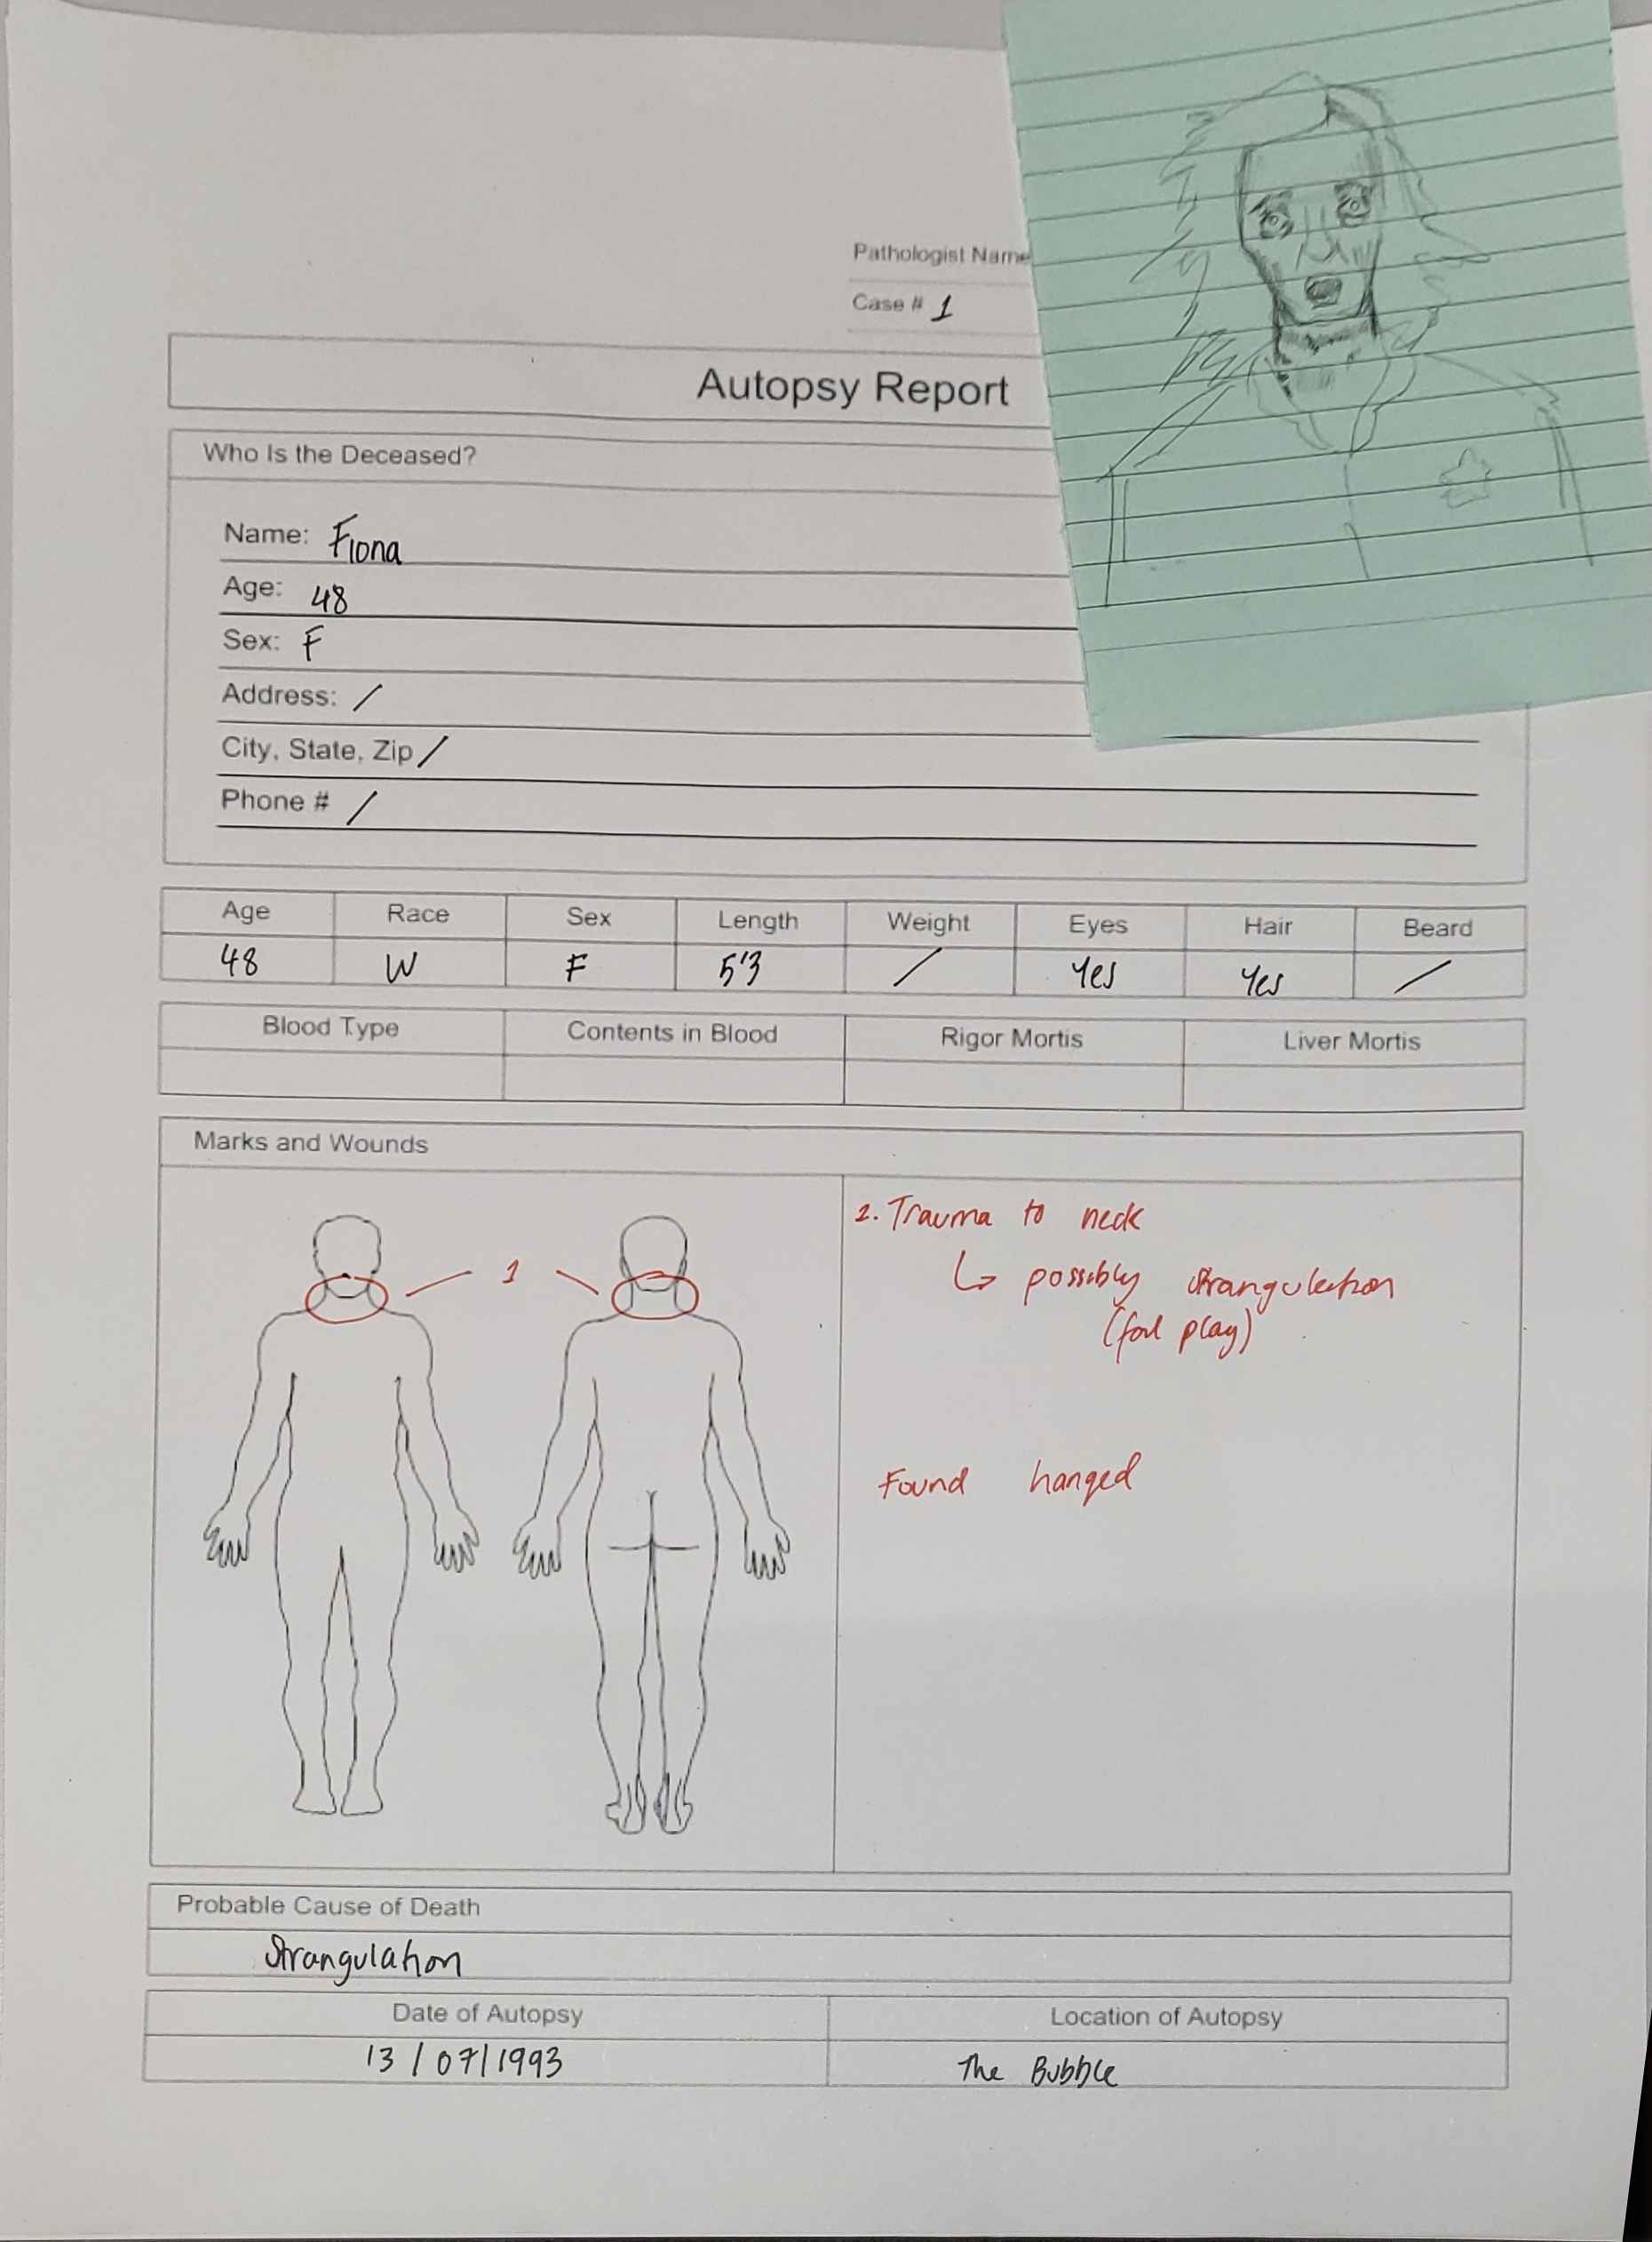 Pathologist Name
Case # 1
Autopsy Report
Who Is the Deceased?
Name: Fiona
Age: 48
Sex: F
Address: /
City, State, Zip /
Phone # /
Age Race Sex Length Weight Eyes Hair Beard
48 W F 5'3 / Yes Yes /
Blood Type Contents in Blood Rigor Mortis Liver Mortis
Marks and Wounds
1
1. Trauma to neck
↳ possibly strangulation
(foul play)
Found hanged
Probable Cause of Death
Strangulation
Date of Autopsy Location of Autopsy
13/07/1993 The Bubble